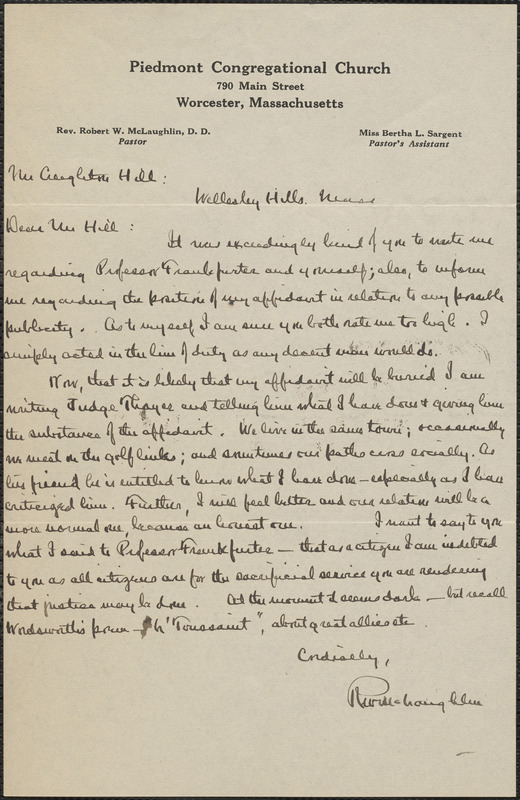 Piedmont Congregational Church
790 Main Street
Worcester, Massachusetts
Rev. Robert W. McLaughlin, D. D.
Pastor
Miss Bertha L. Sargent
Pastor's Assistant
Mr Creighton Hill:
Wellesley Hills. Mass
Dear Mr Hill:
It was exceedingly kind of you to write me
regarding Professor Frankfurter and yourself; also, to inform
me regarding the position of my affidavit in relation to any possible
publicity. As to myself I am sure you both rate me too high. I
simply acted in the line of duty as any decent man would do.
Now, that it is likely that my affidavit will be buried I am
writing Judge Thayer and telling him what I have done & giving him
the substance of the affidavit. We live in the same town; occasionally
we meet on the golf links; and sometimes our paths cross socially. As
his friend he is entitled to know what I have done - especially as I have
criticized him. Further, I will feel better and our relation will be a
more normal one, because an honest one. I want to say to you
what I said to Professor Frankfurter - that as a citizen I am indebted
to you as all citizens are for the sacrificial service you are rendering
that justice may be done. At the moment it seems dark - but recall
Wordsworth's poem - "Toussaint", about great allies etc.
Cordially,
RW McLaughlin